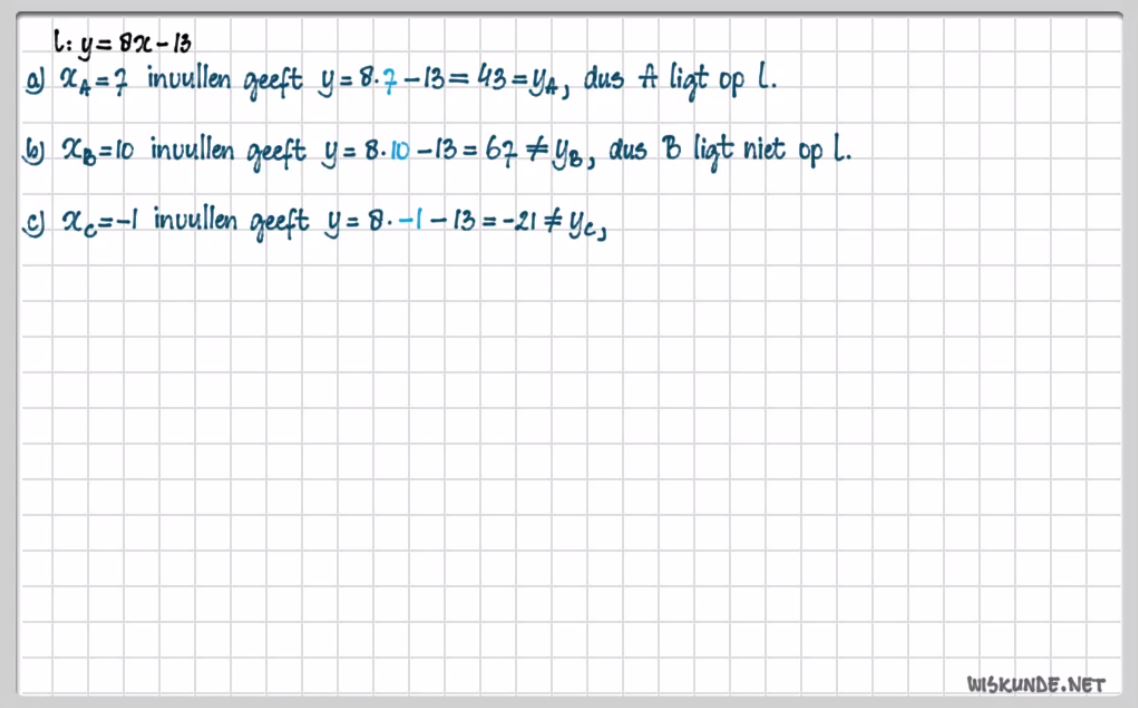 l: y = 8x - 13
a) x_A = 7 invullen geeft y = 8·7 - 13 = 43 = y_A, dus A ligt op l.
b) x_B = 10 invullen geeft y = 8·10 - 13 = 67 ≠ y_B, dus B ligt niet op l.
c) x_C = -1 invullen geeft y = 8·-1 - 13 = -21 ≠ y_C,
WISKUNDE.NET